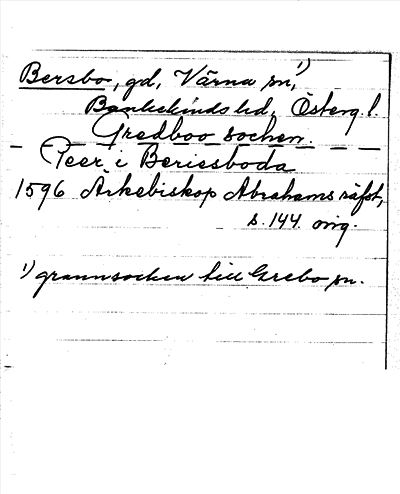 Bersbo, gd, Värna sn,¹)
Bankekinds hd, Österg. l.
Gredboo sochen.
Peer i Beriessboda
1596 Ärkebiskop Abrahams räfst,
s. 144. orig.
¹) grannsocken till Grebo sn.